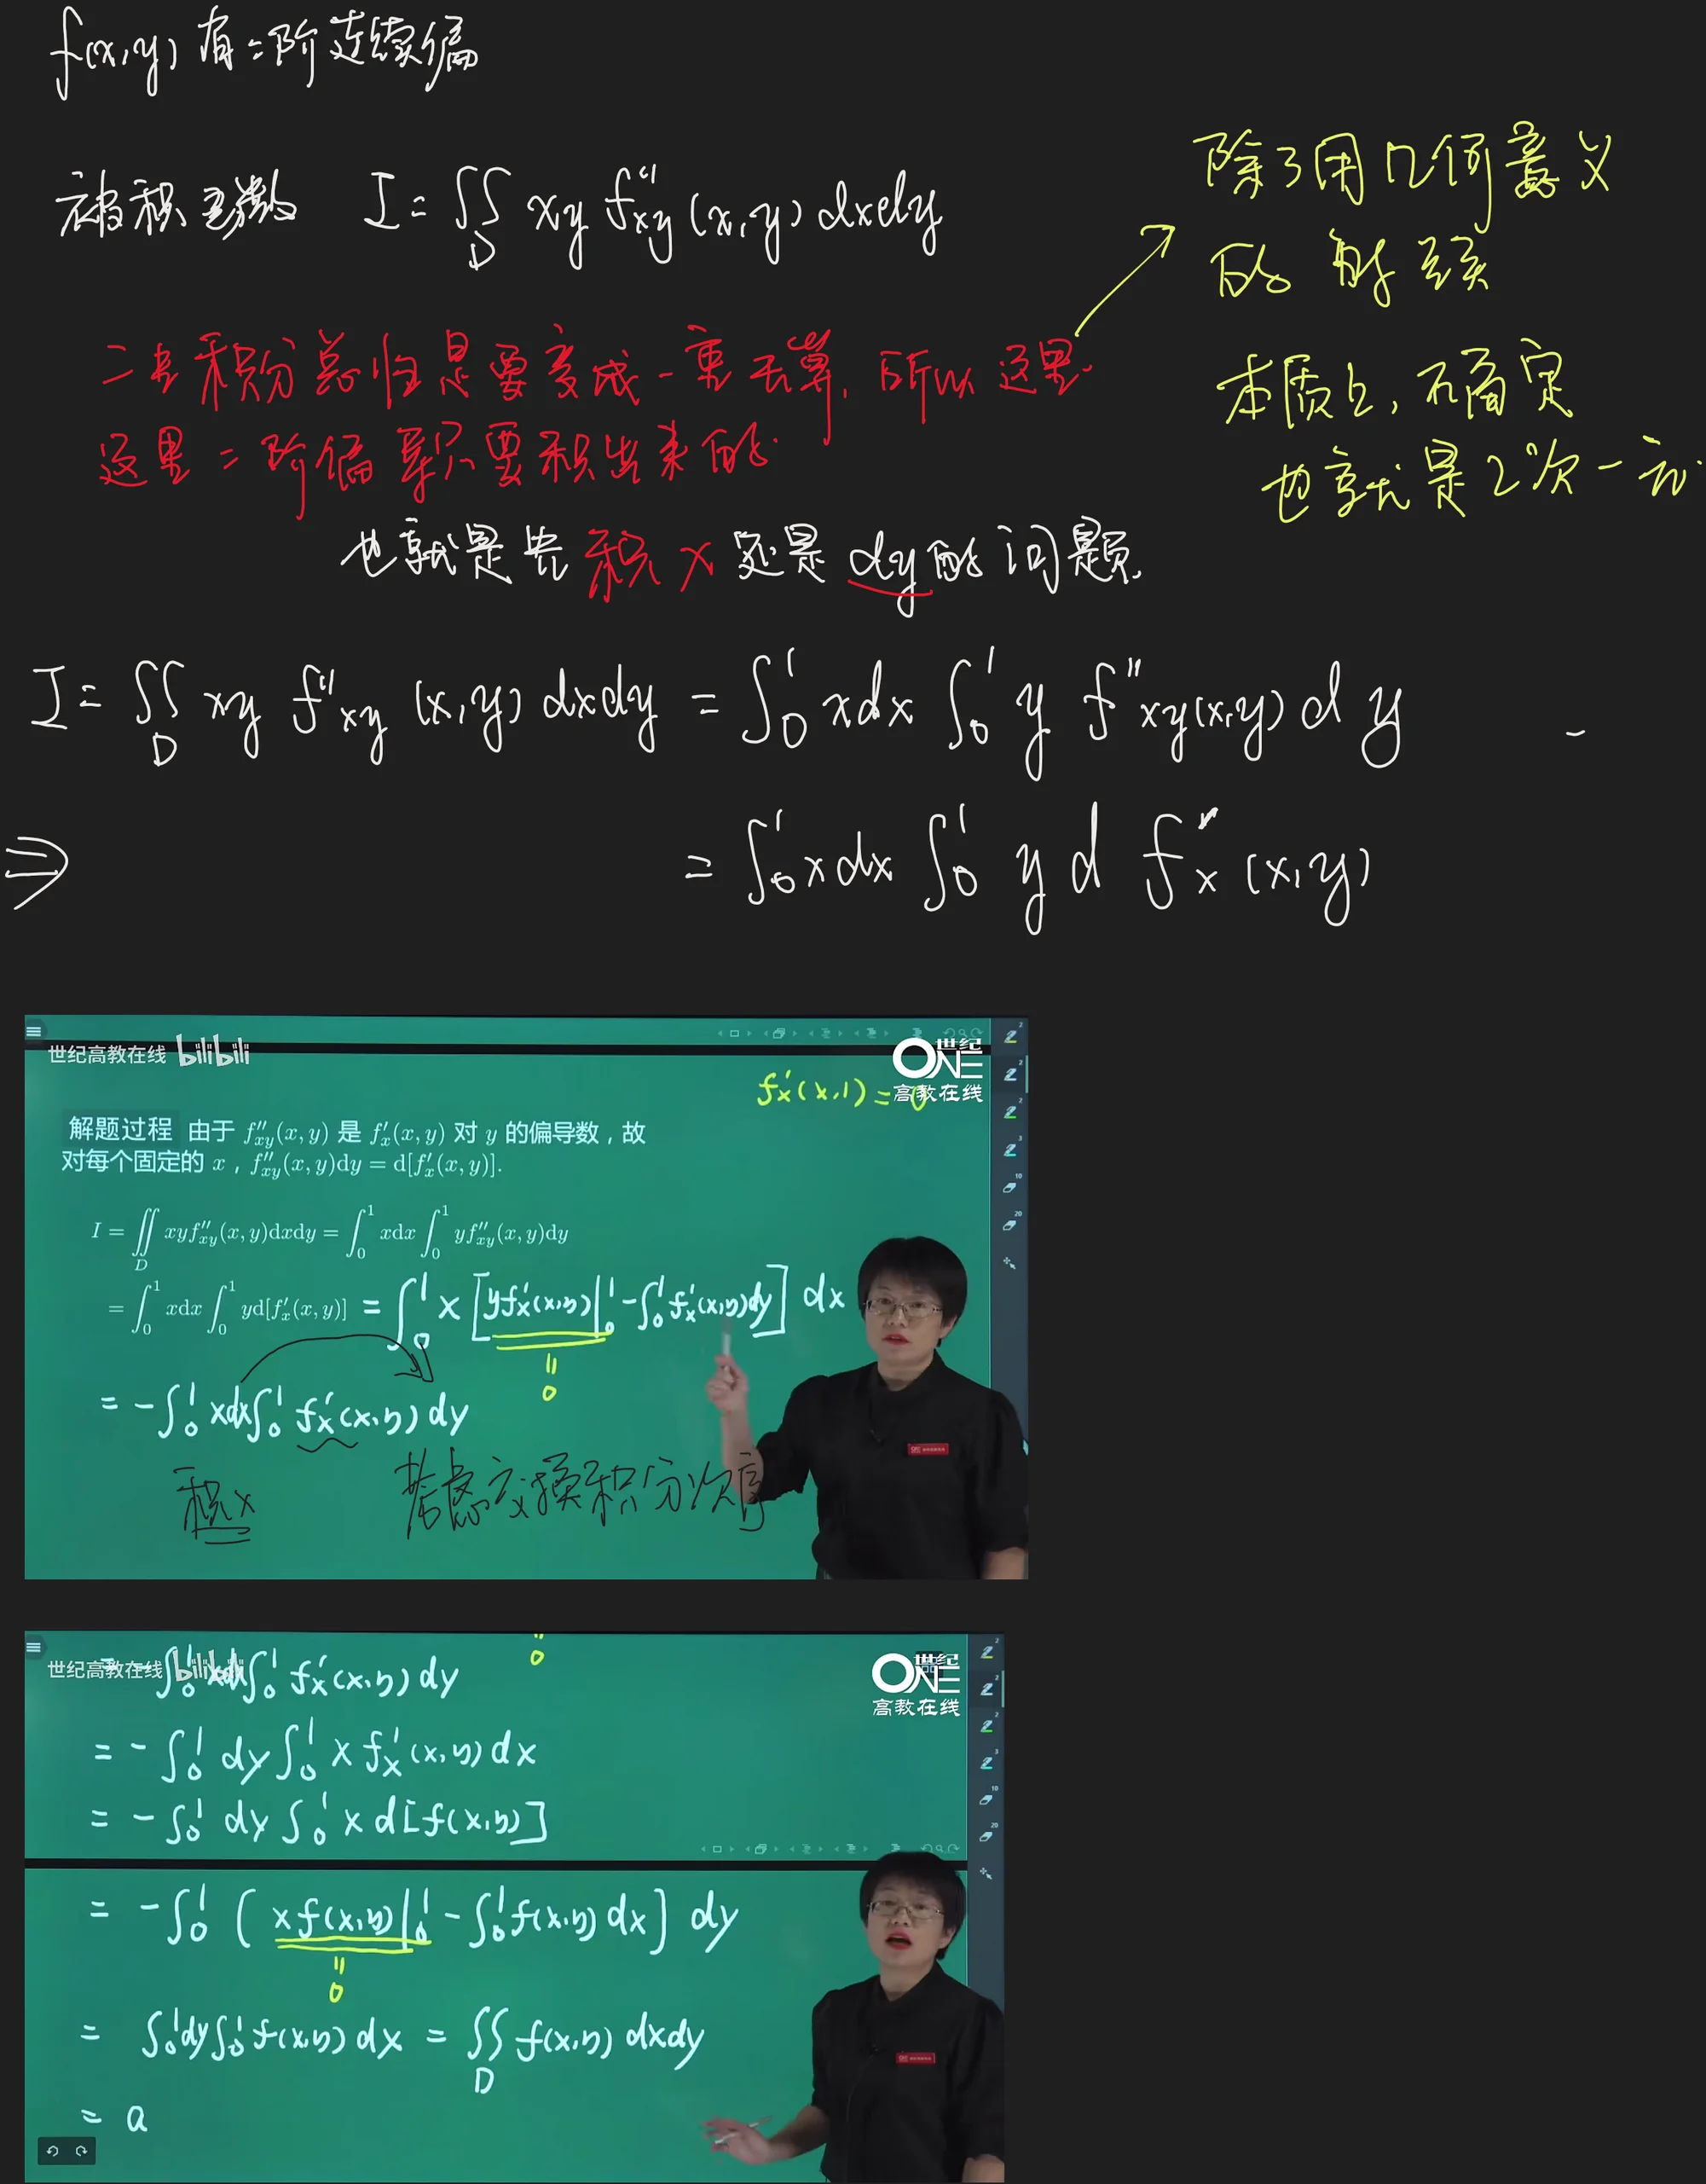 f(x,y) 有二阶连续偏
被积函数 I = ∬_D xy f''xy (x,y) dxdy
除了用几何意义
的
本质上,不
也就是2次一元
二重积分总归是要变成一重去算, 所以这里
这里二阶偏导只要积出来的
也就是先积 x 还是 dy 的问题.
I = ∬_D xy f''xy (x,y) dxdy = ∫₀¹ xdx ∫₀¹ y f''xy(x,y) d y
⇒ = ∫₀¹ x dx ∫₀¹ y d f'x (x,y)
世纪高教在线 bilibili
ONE 世纪
高教在线
f'x(x,1) = 0
解题过程 由于 f''xy(x,y) 是 f'x(x,y) 对 y 的偏导数,故
对每个固定的 x,f''xy(x,y)dy = d[f'x(x,y)].
I = ∬_D xyf''xy(x,y)dxdy = ∫₀¹ xdx ∫₀¹ yf''xy(x,y)dy
= ∫₀¹ xdx ∫₀¹ yd[f'x(x,y)] = ∫₀¹ x [yf'x(x,y)|₀¹ - ∫₀¹ f'x(x,y)dy] dx
= 0
= -∫₀¹ xdx∫₀¹ f'x(x,y) dy
积x 考虑交换积分次序
世纪高教在线 bilibili
ONE 世纪
高教在线
= 0
= -∫₀¹ xdx∫₀¹ f'x(x,y) dy
= -∫₀¹ dy ∫₀¹ x f'x(x,y) dx
= -∫₀¹ dy ∫₀¹ x d[f(x,y)]
= -∫₀¹ [xf(x,y)|₀¹ - ∫₀¹ f(x,y) dx] dy
= 0
= ∫₀¹dy∫₀¹ f(x,y) dx = ∬_D f(x,y) dxdy
= a